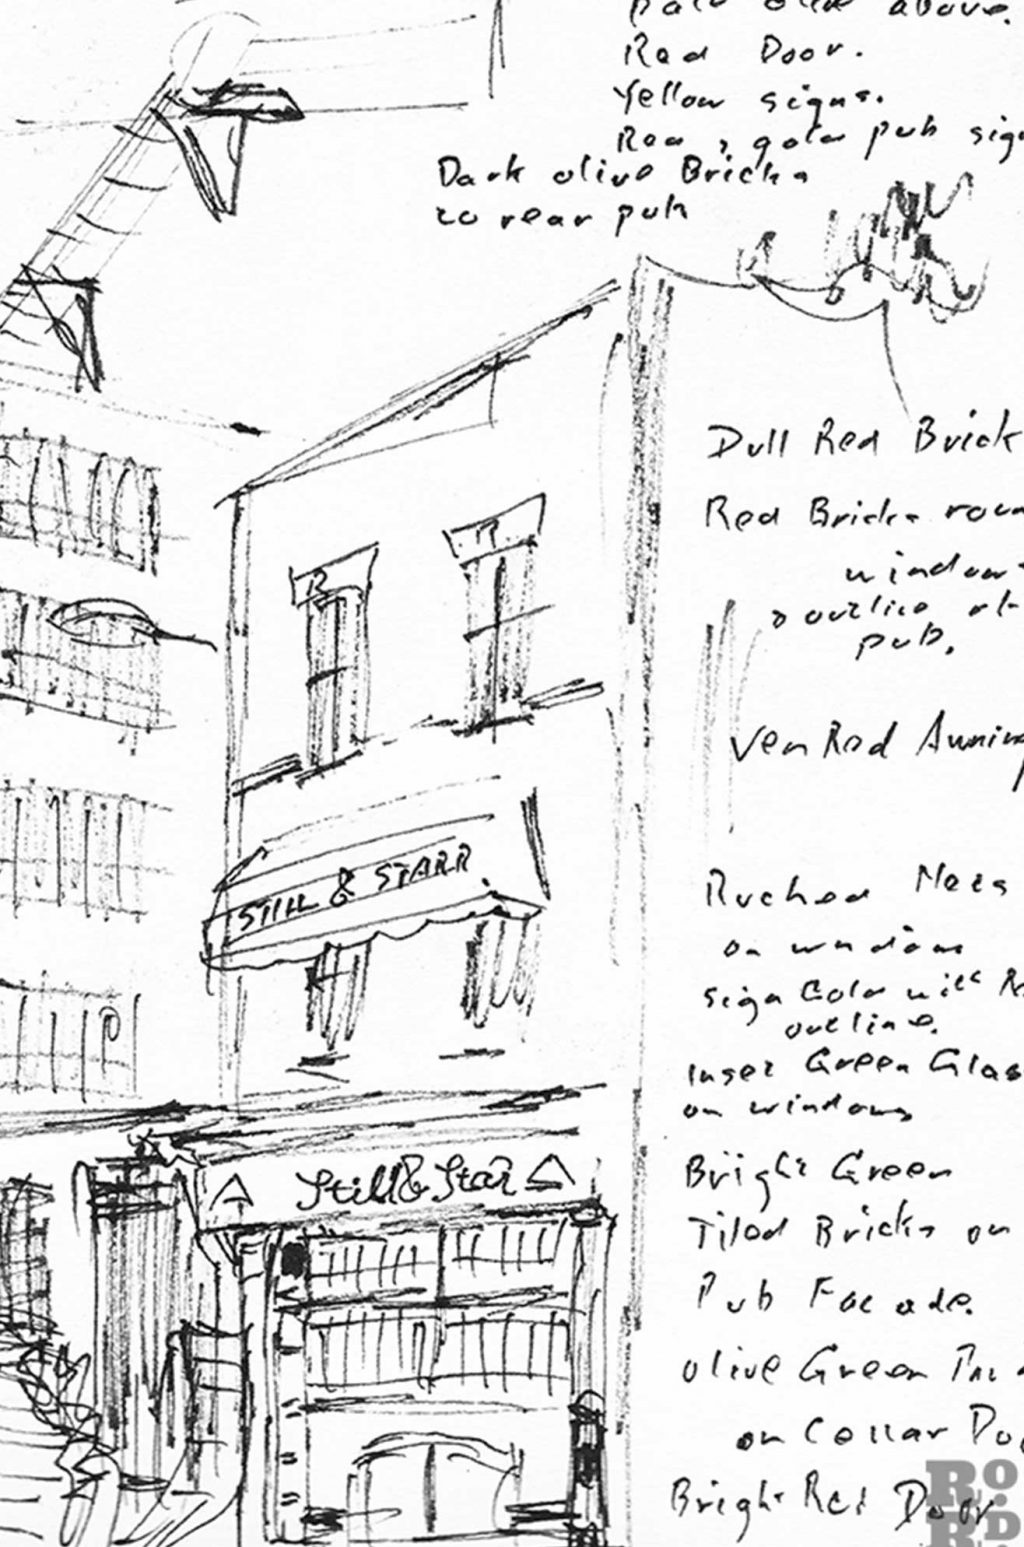 above.
Red Door.
Yellow signs.
pub
Dark olive Bricks
to rear pub
Dull Red Brick
Red Bricks
windows
outline of
pub.
Ven Red
R
R
STILL & STARR.
Ruched Nets
on windows
sign Gold with
outline.
Inset Green
on windows
Bright Green
Still & Star
Tiled Bricks on
Pub Facade.
Olive Green
on Cellar
Bright Red Door
RO
RD